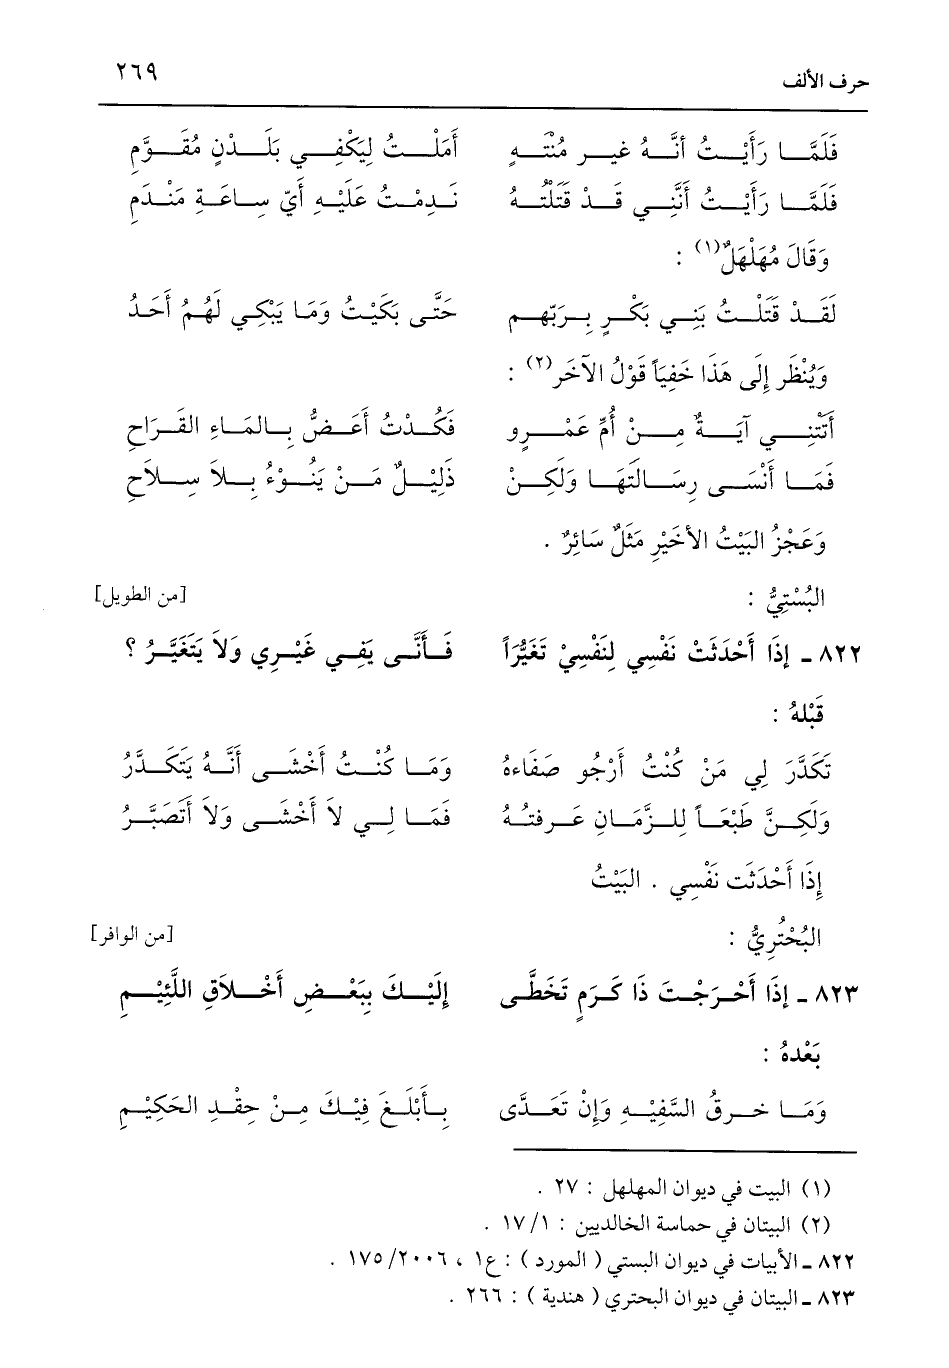 حرف الألف ٢٦٩
فَلَمَّا رَأَيْتُ أَنَّهُ غير مُنْتَهٍ أَمَلْتُ لِيَكْفِي بَلَدْنٍ مُقَوَّمِ
فَلَمَّا رَأَيْتُ أَنَّنِي قَدْ قَتَلْتُهُ نَدِمْتُ عَلَيْهِ أَيّ سِاعَةِ مَنْدَمِ
وَقَالَ مُهَلْهَلٌ(١) :
لَقَدْ قَتَلْتُ بَنِي بَكْرٍ بِرَبّهِم حَتَّى بَكَيْتُ وَمَا يَبْكِي لَهُمْ أَحَدُ
وَيُنْظَر إِلَى هَذَا خَفِيَاً قَوْلُ الآخَر(٢) :
أَتَتْنِي آيَةٌ مِنْ أُمِّ عَمْرِو فَكُدْتُ أَعَضُّ بِالمَاءِ القَرَاحِ
فَمَا أَنْسَى رِسَالَتَهَا وَلَكِنْ ذَلِيْلٌ مَنْ يَنُوْءُ بِلاَ سِلاَحِ
وَعَجْزُ البَيْتُ الأَخَيْرِ مَثَلٌ سَائِرٌ .
البُسْتِيُّ : [من الطويل]
٨٢٢ ـ إِذَا أَحْدَثَتْ نَفْسِي لِنَفْسِيْ تَغَيُّرَاً فَأَنَّى يَفِي غَيْرِي وَلاَ يَتَغَيَّرُ ؟
قَبْلهُ :
تَكَدَّرَ لِي مَنْ كُنْتُ أَرْجُو صَفَاءهُ وَمَا كُنْتُ أَخْشَى أَنَّهُ يَتَكَدَّرُ
وَلَكِنَّ طَبْعَاً لِلزَّمَانِ عَرفتُهُ فَمَا لِي لاَ أَخْشَى وَلاَ أَتَصَبَّرُ
إِذَا أَحْدَثَت نَفْسِي . البَيْتُ
البُحْتُرِيُّ : [من الوافر]
٨٢٣ ـ إِذَا أَحْرَجْتَ ذَا كَرَمٍ تَخَطَّى إِلَيْكَ بِبَعْضِ أَخْلاَقِ اللَّئِيْمِ
بَعْدهُ :
وَمَا خرقُ السَّفِيْهِ وَإِنْ تَعَدَّى بِأَبْلَغَ فِيْكَ مِنْ حِقْدِ الحَكِيْمِ
(١) البيت في ديوان المهلهل : ٢٧ .
(٢) البيتان في حماسة الخالديين : ١/ ١٧ .
٨٢٢ ـ الأبيات في ديوان البستي ( المورد ) : ع١ ، ٢٠٠٦/ ١٧٥ .
٨٢٣ ـ البيتان في ديوان البحتري ( هندية ) : ٢٦٦ .